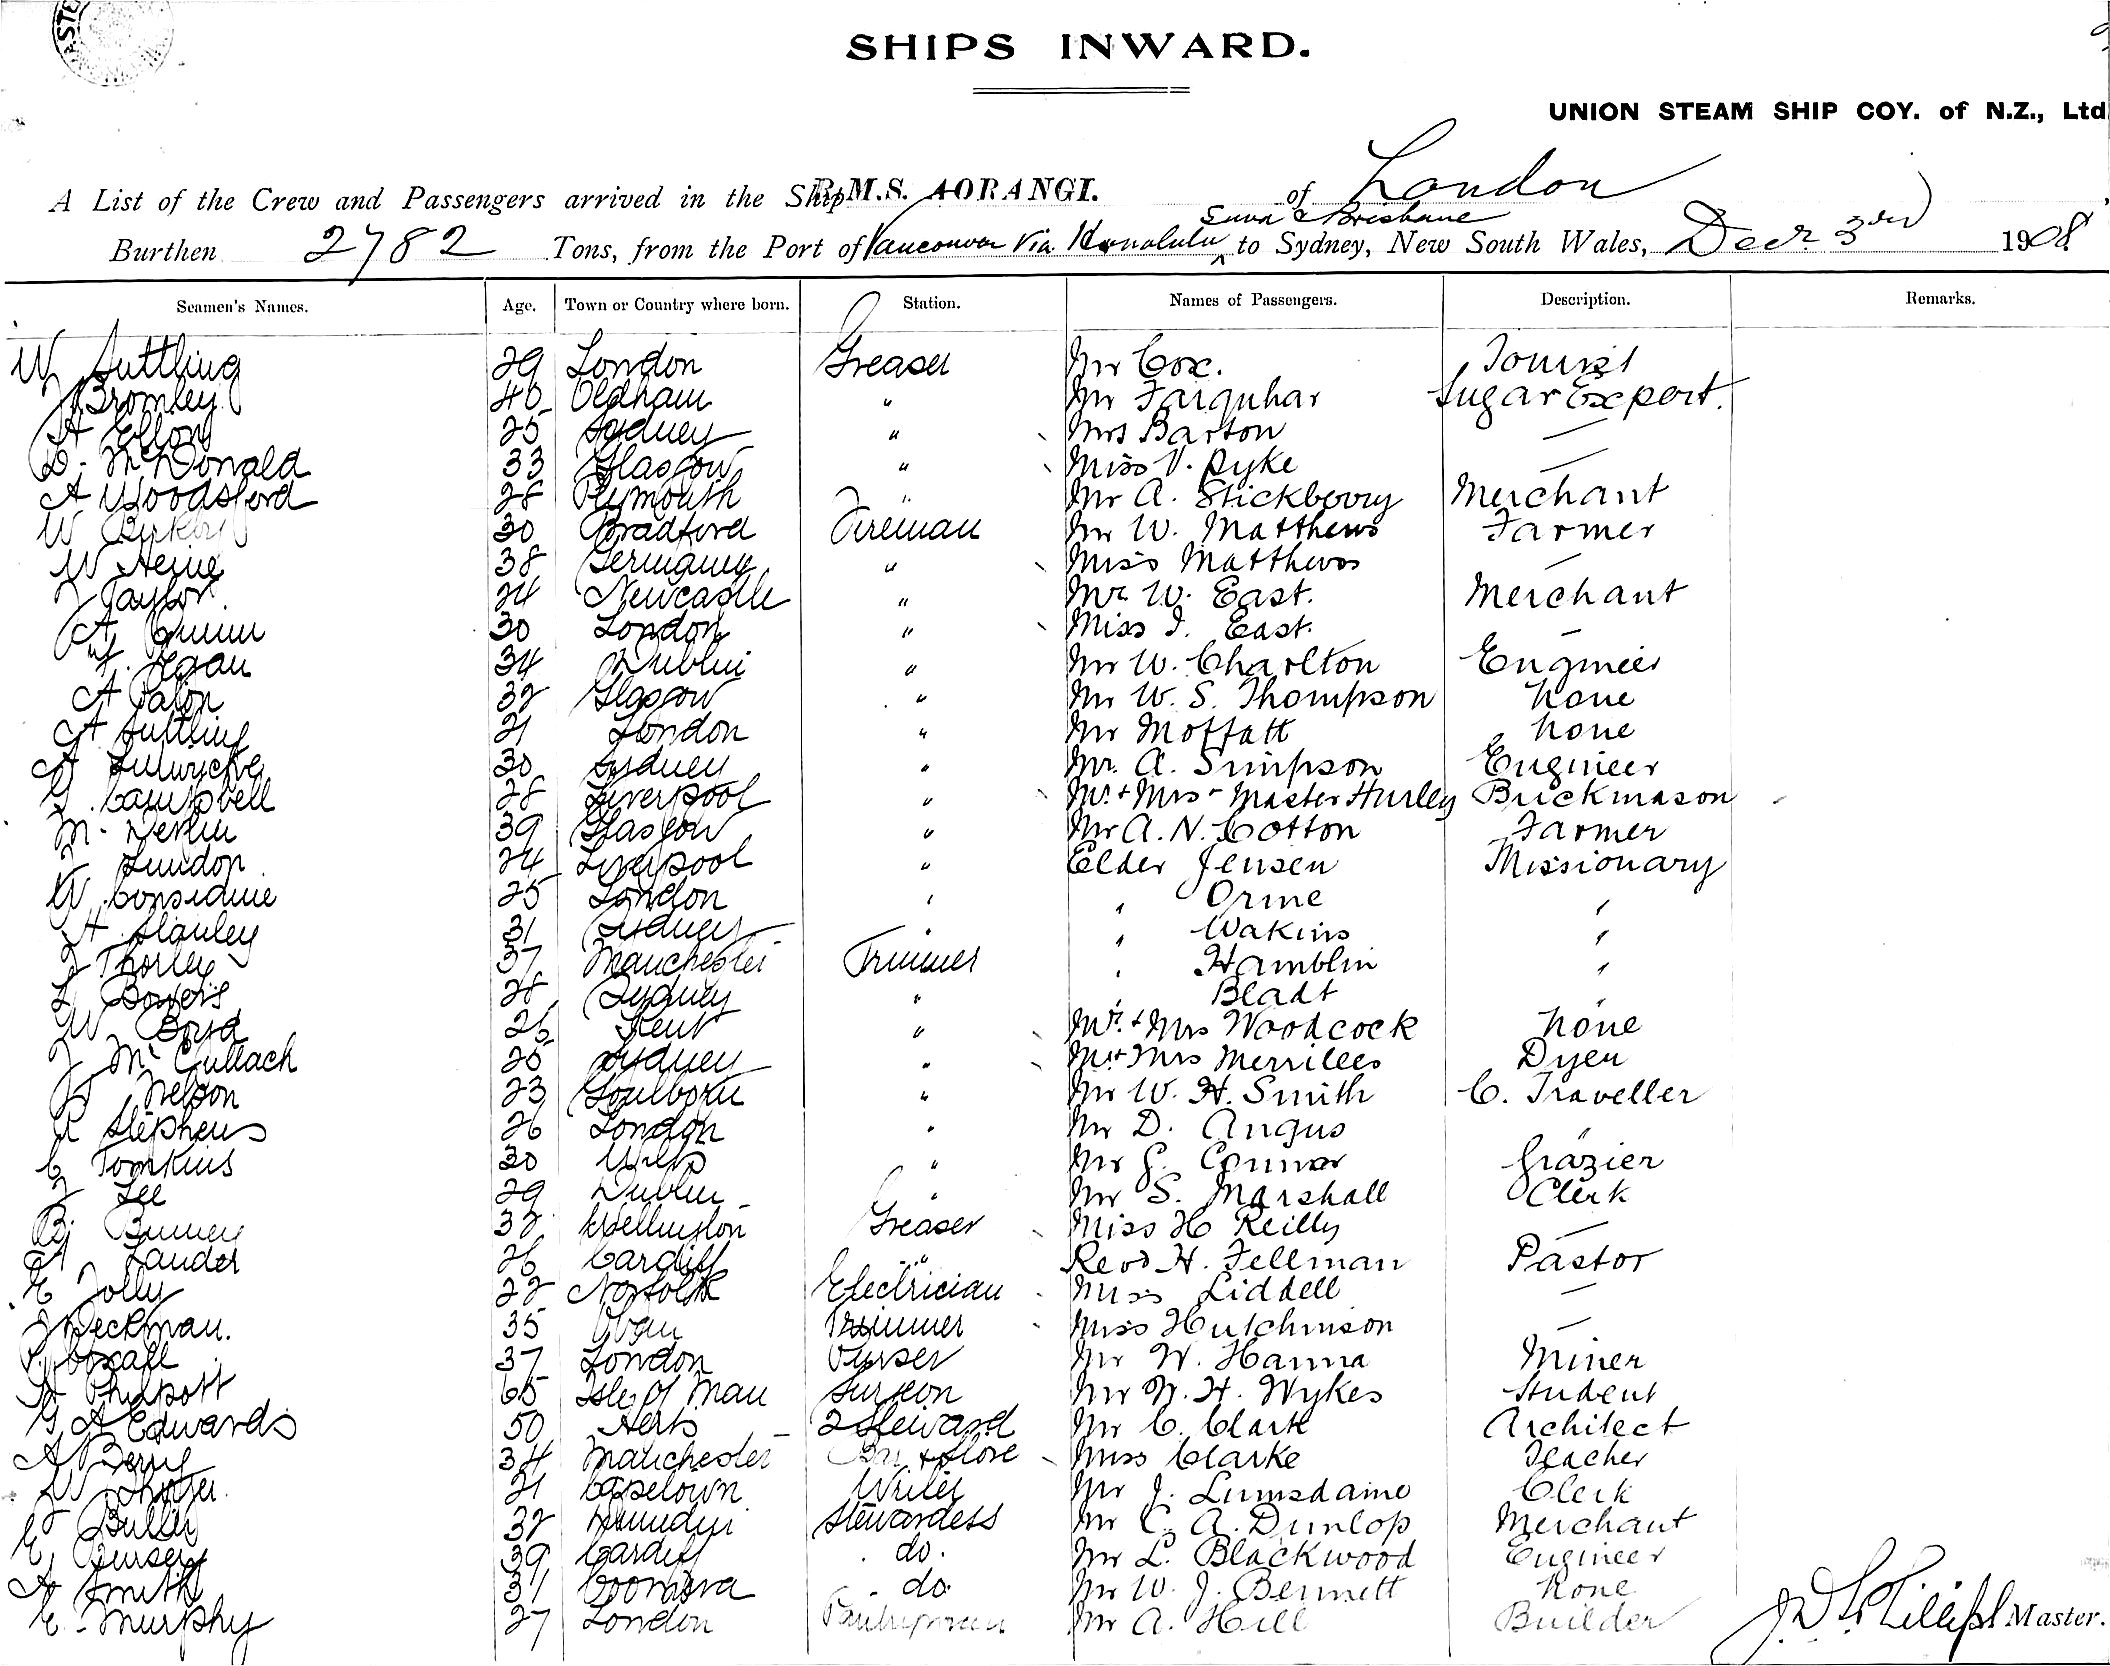 SHIPS INWARD.
UNION STEAM SHIP COY. of N.Z., Ltd
A List of the Crew and Passengers arrived in the Ship R.M.S. AORANGI. of London
Suva & Brisbane
Burthen 2782 Tons, from the Port of Vancouver via Honolulu to Sydney, New South Wales, Decr 3rd 1908
Seamen's Names. Age. Town or Country where born. Station. Names of Passengers. Description. Remarks.
W Suttling 29 London Greaser Mr Cox. Tourist
Bromley 40 Oldham " Mr Farquhar Sugar Expert.
A 25 Sydney " Mrs Barton —
D. McDonald 33 Glasgow " Miss V. Pyke —
A Woodsford 28 Plymouth " Mr A. Stickberry Merchant
W 30 Bradford Fireman Mr W. Matthews Farmer
W Heine 38 Germany " Miss Matthews —
J Taylor. 24 Newcastle " Mr W. East. Merchant
A 30 London " Miss I. East. —
Egan 34 Dublin " Mr W. Charlton Engineer
A Paton 32 Glasgow " Mr W. S. Thompson None
A Suttling 21 London " Mr Moffatt None
A 30 Sydney " Mr. A. Simpson Engineer
G. Campbell 28 Liverpool " Mr. + Mrs - Master Hurley Brickmason
M. Devlin 39 Glasgow " Mr A. N. Cotton Farmer
24 Liverpool " Elder Jensen Missionary
W Considine 25 London " " Orme "
H Stanley 31 Sydney " " Wakins "
J Thorley 37 Manchester Trimmer " Hamblin "
L Bowers 28 Sydney " " Bladt "
W Boyd Kent " Mr. + Mrs Woodcock None
J McCullach 25 Sydney " Mr + Mrs Merrilees Dyer
Nelson 23 Goulborn " Mr W. H. Smith C. Traveller
R Stephens 26 London " Mr D. Angus "
C Tomkins 30 Wilts " Mr G. Connor Grazier
J Lee 29 Dublin " Mr S. Marshall Clerk
Binney 32 Wellington Greaser Miss H Reilly —
A Lauder 26 Cardiff " Revd H. Fellman Pastor
E Jolly 22 Norfolk Electrician Miss Liddell —
J Heckman. 35 Trimmer Miss Hutchinson —
Coxall 37 London Purser Mr W. Hanna Miner
H Philpott 65 Isle of Man Surgeon Mr W. H. Wykes Student
G A Edwards 50 Herts 2 Steward Mr C. Clark Architect
A Berry 34 Manchester Bar & Store Miss Clarke Teacher
W 21 Capetown Writer Mr J. Lumsdaine Clerk
Butler 32 Stewardess Mr C. A. Dunlop Merchant
E 39 Cardiff do. Mr L. Blackwood Engineer
A Smith 31 Coomera do. Mr W. J. Bennett None
E. Murphy 27 London Pantryman Mr A. Hill Builder
Master.